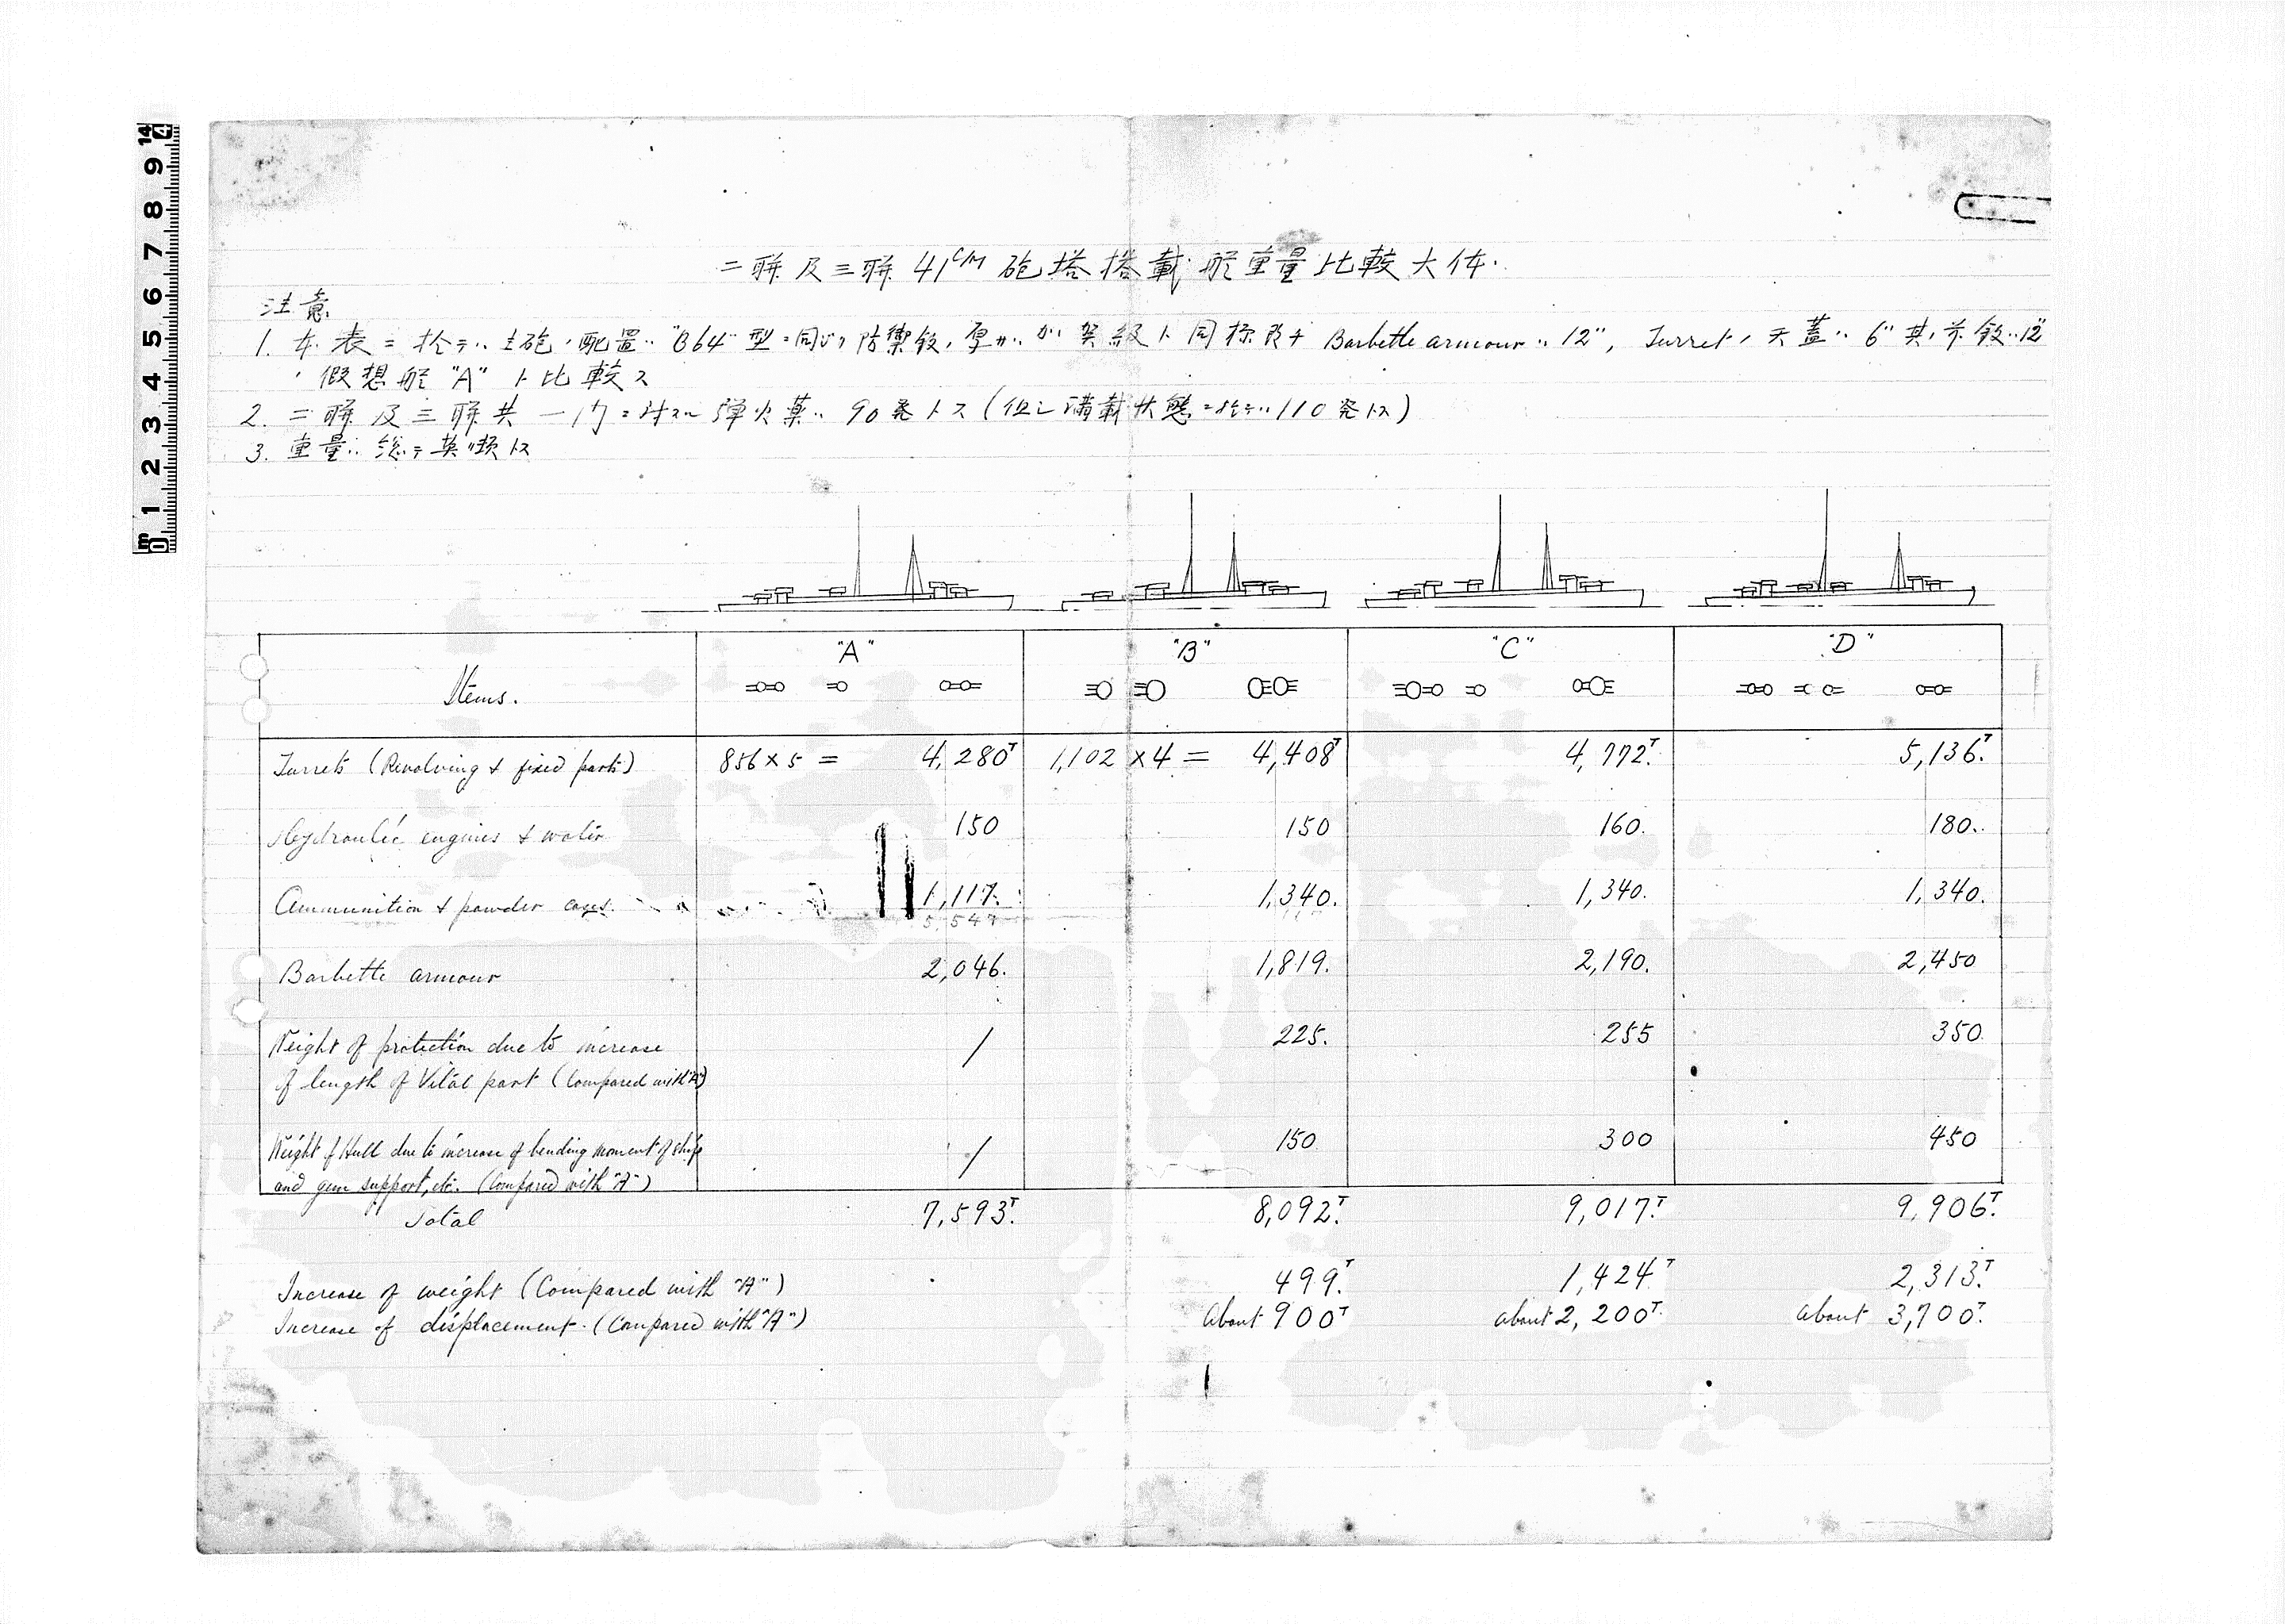 二聯及三聯 41C/M 砲塔搭載艦重量比較大体.
注意
1. 本表ニ於テハ主砲ノ配置ハ "B64" 型ニ同ジク防禦鈑ノ厚サハ加賀級ト同様故ニ Barbette armour ハ 12", Turret ノ天蓋ハ 6" 其ノ前鈑ハ12"
ノ假想艦 "A" ト比較ス
2. 二聯及三聯共一門ニ対スル弾火薬ハ 90発トス (但シ満載状態ニ於テハ 110発トス)
3. 重量ハ総テ英噸トス
Items.
"A" "B" "C" "D"
Turrets (Revolving & fixed parts) 856 × 5 = 4,280T 1,102 × 4 = 4,408T 4,772T. 5,136T.
Hydraulic engines & water 150 150 160. 180.
Ammunition & powder cases. 1,117. 1,340. 1,340. 1,340.
5,547
Barbette armour 2,046. 1,819. 2,190. 2,450
Weight of protection due to increase / 225. 255 350
of length of Vital part (Compared with "A")
Weight of Hull due to increase of bending moment of ship / 150 300 450
and gun support, etc. (Compared with "A")
Total 7,593T. 8,092T. 9,017T. 9,906T.
Increase of weight (Compared with "A") 499T. 1,424T 2,313T.
Increase of displacement. (Compared with "A") about 900T about 2,200T. about 3,700T.
m 0 1 2 3 4 5 6 7 8 9 14